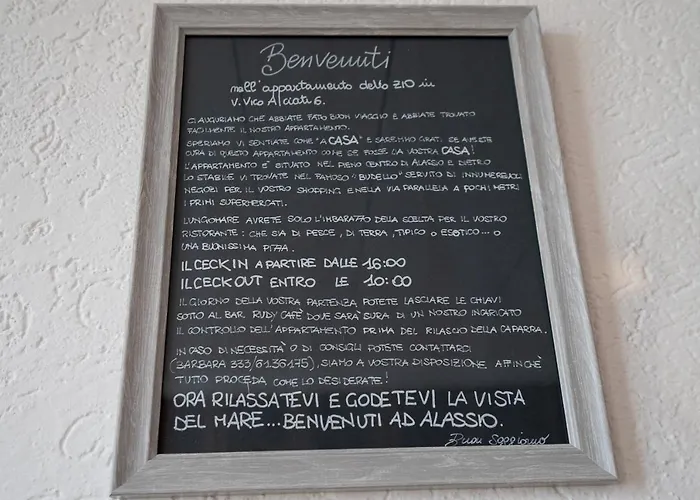 Benvenuti
nell'appartamento dello ZIO in
V. Vico Alciati 6.
CI AUGURIAMO CHE ABBIATE FATTO BUON VIAGGIO E ABBIATE TROVATO
FACILMENTE IL NOSTRO APPARTAMENTO.
SPERIAMO VI SENTIATE COME "A CASA" E SAREMMO GRATI SE AVESTE
CURA DI QUESTO APPARTAMENTO COME SE FOSSE LA VOSTRA CASA!
L'APPARTAMENTO E' SITUATO NEL PIENO CENTRO DI ALASSIO E DIETRO
LO STABILE VI TROVATE NEL FAMOSO "BUDELLO" SERVITO DI INNUMEREVOLI
NEGOZI PER IL VOSTRO SHOPPING E NELLA VIA PARALLELA A POCHI METRI
I PRIMI SUPERMERCATI.
LUNGOMARE AVRETE SOLO L'IMBARAZZO DELLA SCELTA PER IL VOSTRO
RISTORANTE: CHE SIA DI PESCE, DI TERRA, TIPICO O ESOTICO... O
UNA BUONISSIMA PIZZA.
IL CECK IN A PARTIRE DALLE 16:00
IL CECK OUT ENTRO LE 10:00
IL GIORNO DELLA VOSTRA PARTENZA POTETE LASCIARE LE CHIAVI
SOTTO AL BAR RUDY CAFÈ DOVE SARA' CURA DI UN NOSTRO INCARICATO
IL CONTROLLO DELL'APPARTAMENTO PRIMA DEL RILASCIO DELLA CAPARRA.
IN CASO DI NECESSITÀ O DI CONSIGLI POTETE CONTATTARCI
(BARBARA 333/6136175), SIAMO A VOSTRA DISPOSIZIONE AFFINCHÈ
TUTTO PROCEDA COME LO DESIDERATE!
ORA RILASSATEVI E GODETEVI LA VISTA
DEL MARE... BENVENUTI AD ALASSIO.
Buon Soggiorno